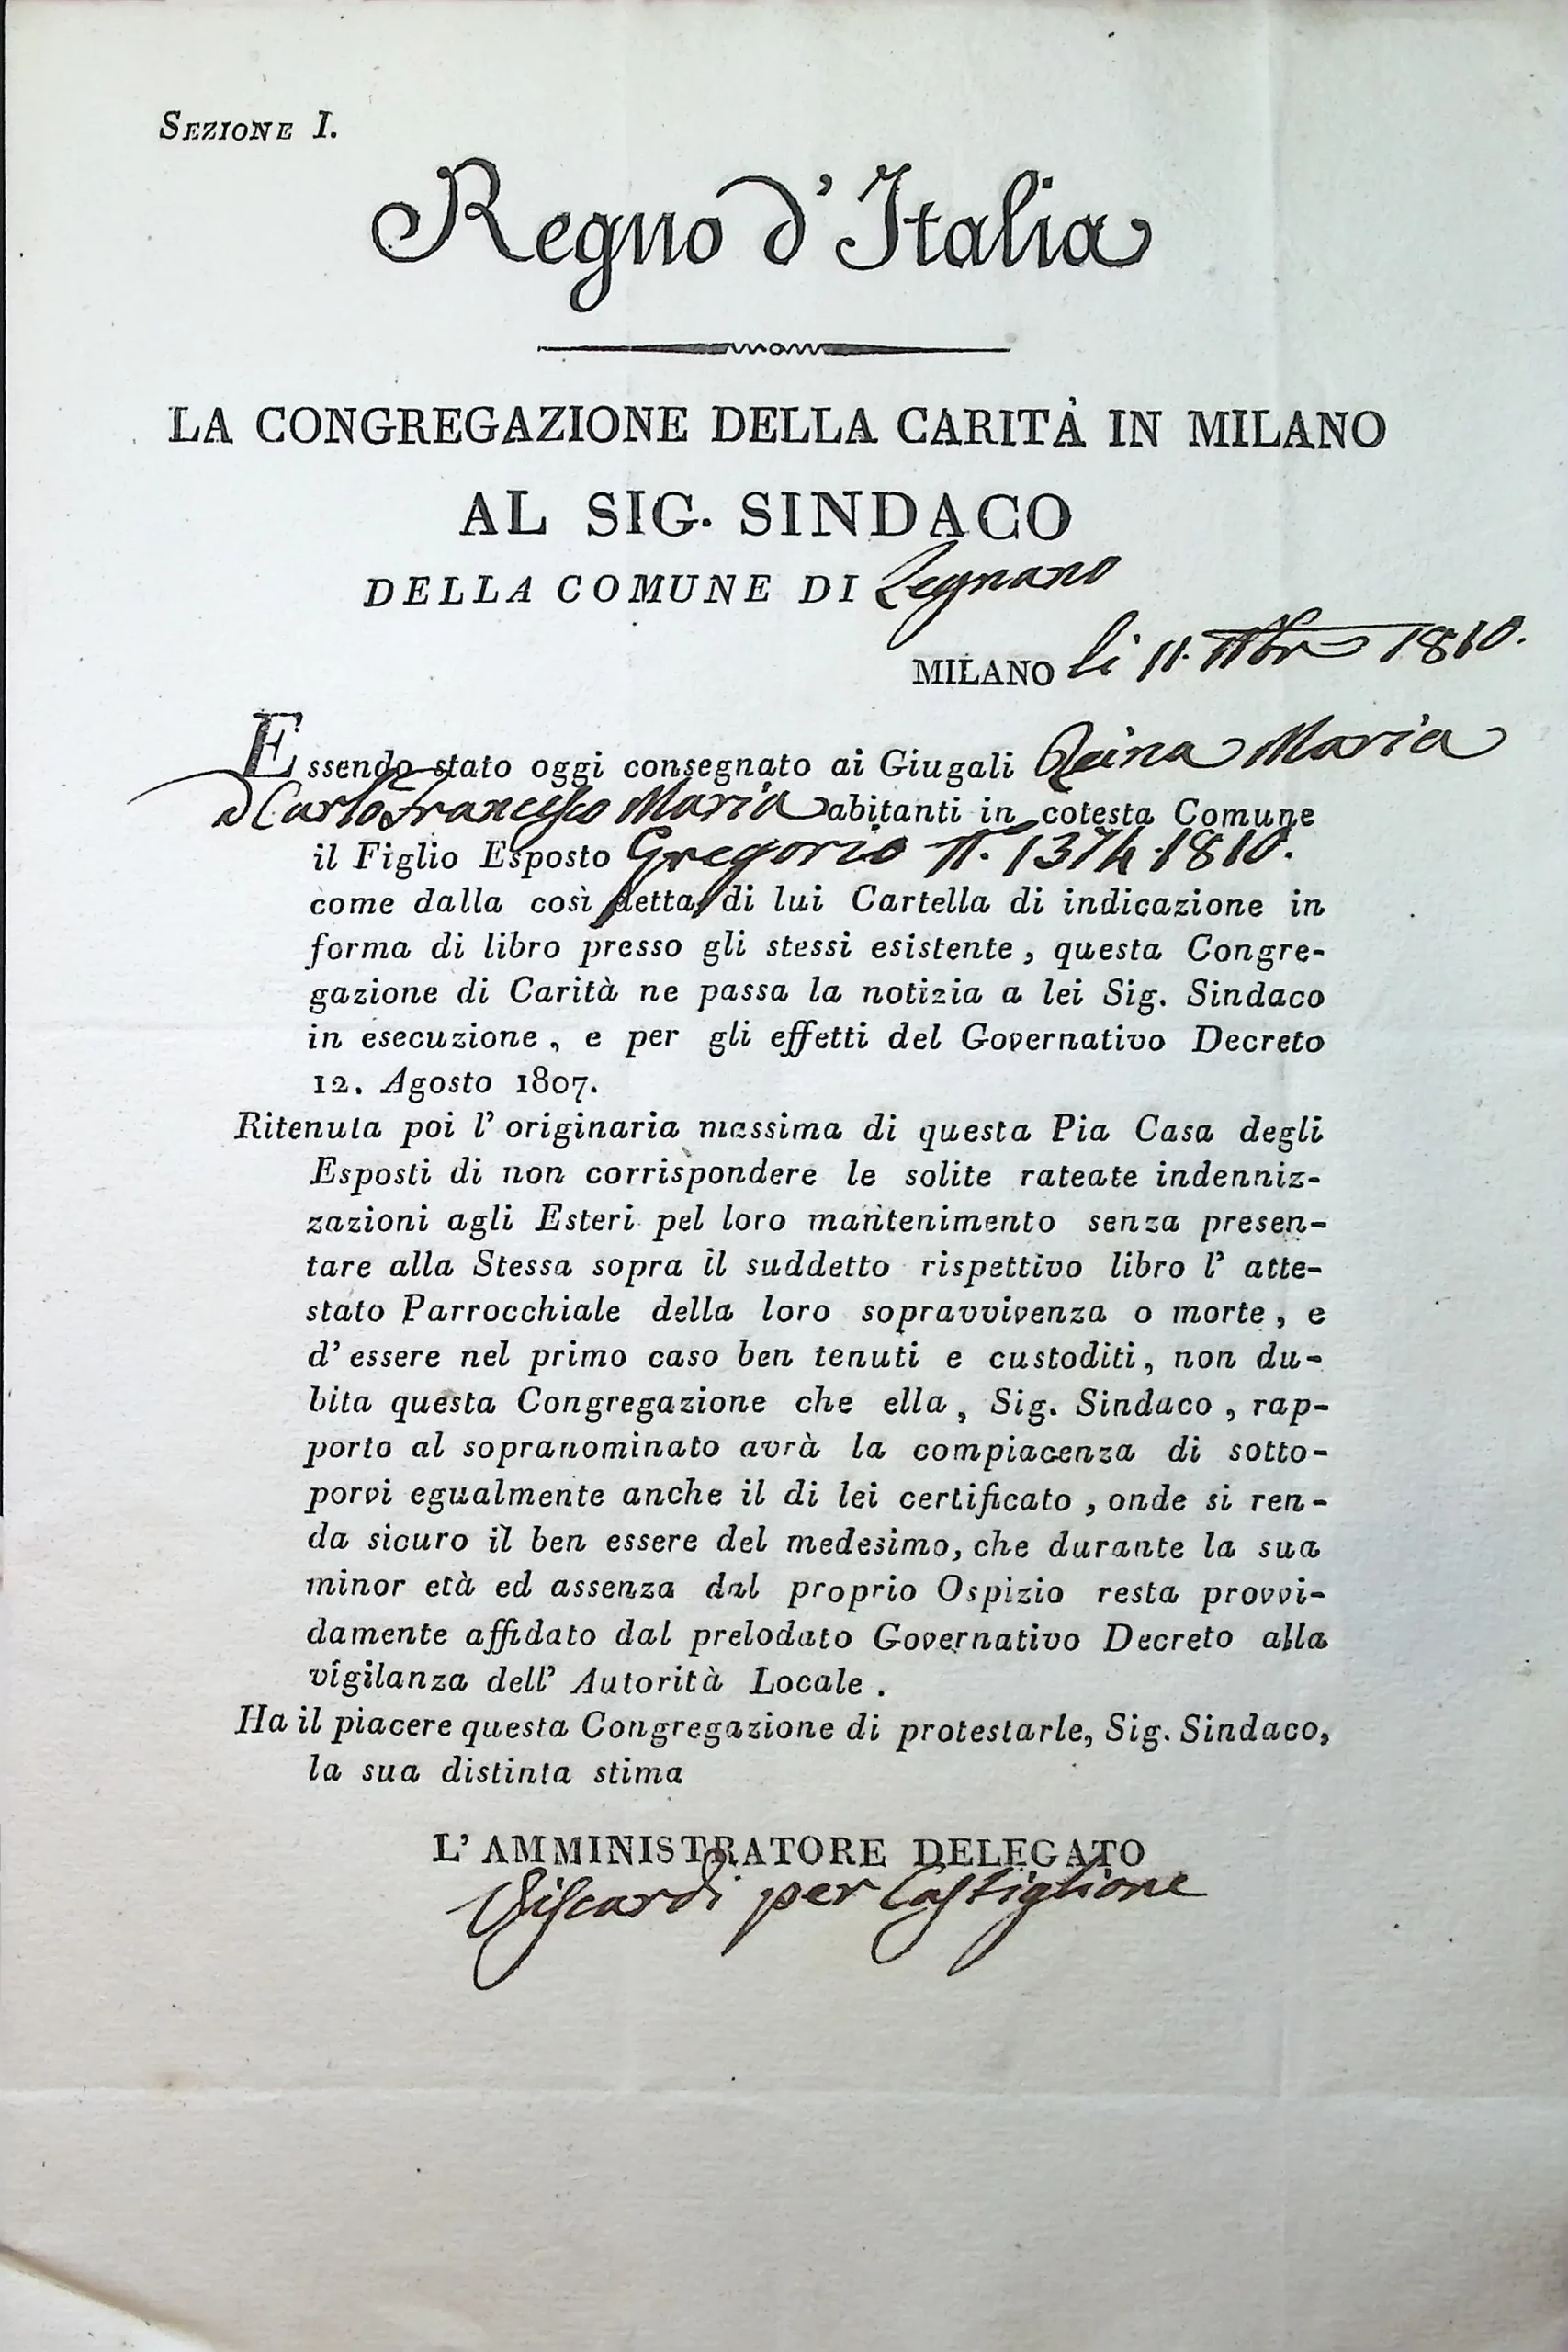 SEZIONE I.
Regno d'Italia
LA CONGREGAZIONE DELLA CARITÀ IN MILANO
AL SIG. SINDACO
DELLA COMUNE DI Legnano
MILANO li 11. 1810.
Essendo stato oggi consegnato ai Giugali Reina Maria
d Carlo Francesco Maria abitanti in cotesta Comune
il Figlio Esposto Gregorio N. 1374. 1810.
come dalla così detta di lui Cartella di indicazione in
forma di libro presso gli stessi esistente, questa Congre-
gazione di Carità ne passa la notizia a lei Sig. Sindaco
in esecuzione, e per gli effetti del Governativo Decreto
12. Agosto 1807.
Ritenuta poi l'originaria massima di questa Pia Casa degli
Esposti di non corrispondere le solite rateate indenniz-
zazioni agli Esteri pel loro mantenimento senza presen-
tare alla Stessa sopra il suddetto rispettivo libro l'atte-
stato Parrocchiale della loro sopravvivenza o morte, e
d'essere nel primo caso ben tenuti e custoditi, non du-
bita questa Congregazione che ella, Sig. Sindaco, rap-
porto al sopranominato avrà la compiacenza di sotto-
porvi egualmente anche il di lei certificato, onde si ren-
da sicuro il ben essere del medesimo, che durante la sua
minor età ed assenza dal proprio Ospizio resta provvi-
damente affidato dal prelodato Governativo Decreto alla
vigilanza dell'Autorità Locale.
Ha il piacere questa Congregazione di protestarle, Sig. Sindaco,
la sua distinta stima
L'AMMINISTRATORE DELEGATO
Viscardi per Castiglione